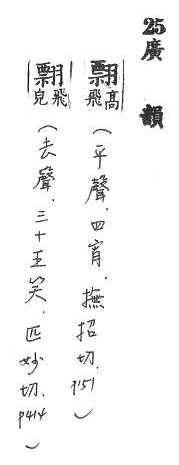 25廣韻
翲高飛(平聲.四宵.撫招切.P151)
翲飛皃(去聲.三十五笑.匹妙切.P414)